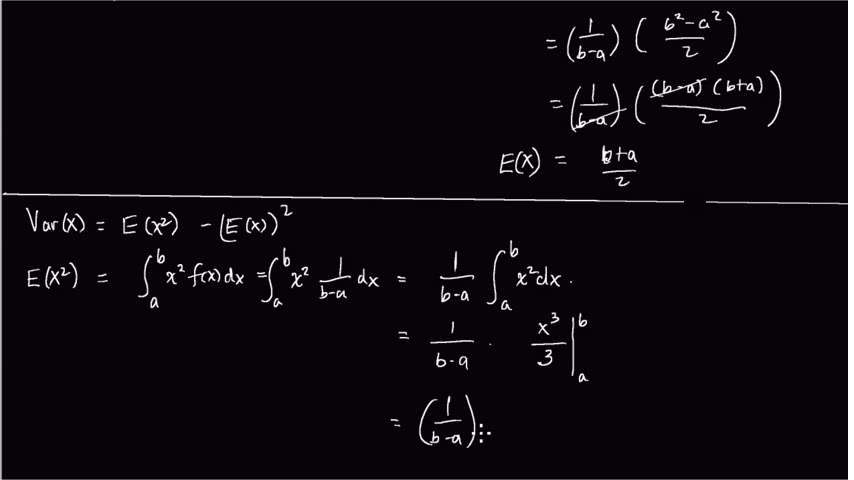 = (1/(b-a)) ((b²-a²)/2)
= (1/(b-a)) ((b-a)(b+a)/2)
E(X) = (b+a)/2
Var(X) = E(X²) - (E(X))²
E(X²) = ∫ₐᵇ x² f(x) dx = ∫ₐᵇ x² 1/(b-a) dx = 1/(b-a) ∫ₐᵇ x² dx.
= 1/(b-a) · x³/3 |ₐᵇ
= (1/(b-a))